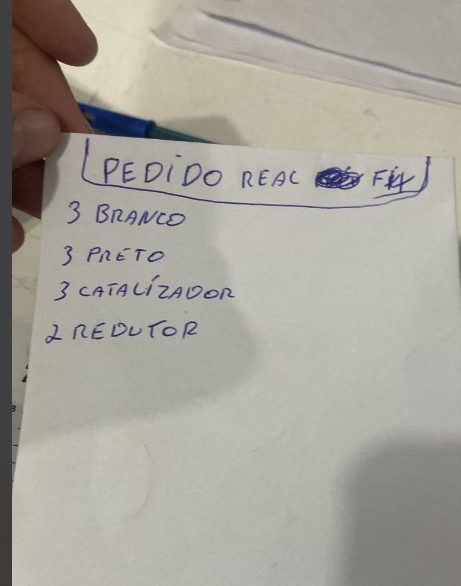 PEDIDO REAL FIX
3 BRANCO
3 PRETO
3 CATALÍZADOR
2 REDUTOR